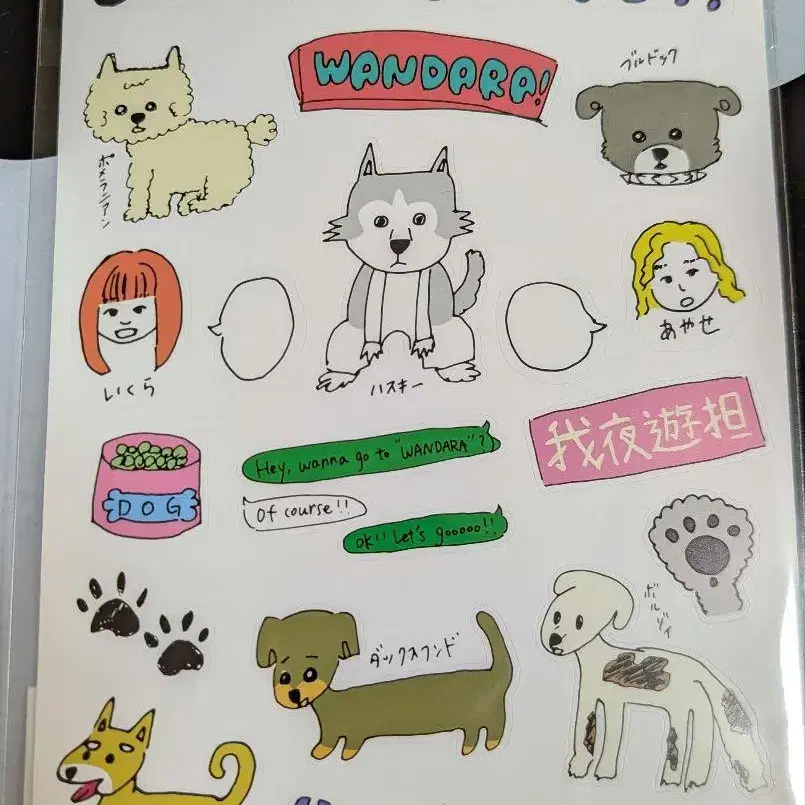 WANDARA!
ブルドック
ポメラニアン
いくら
ハスキー
あやせ
我夜遊担
DOG
Hey, wanna go to "WANDARA"?
Of course!!
OK!! Let's gooooo!!
ボルゾイ
ダックスフンド